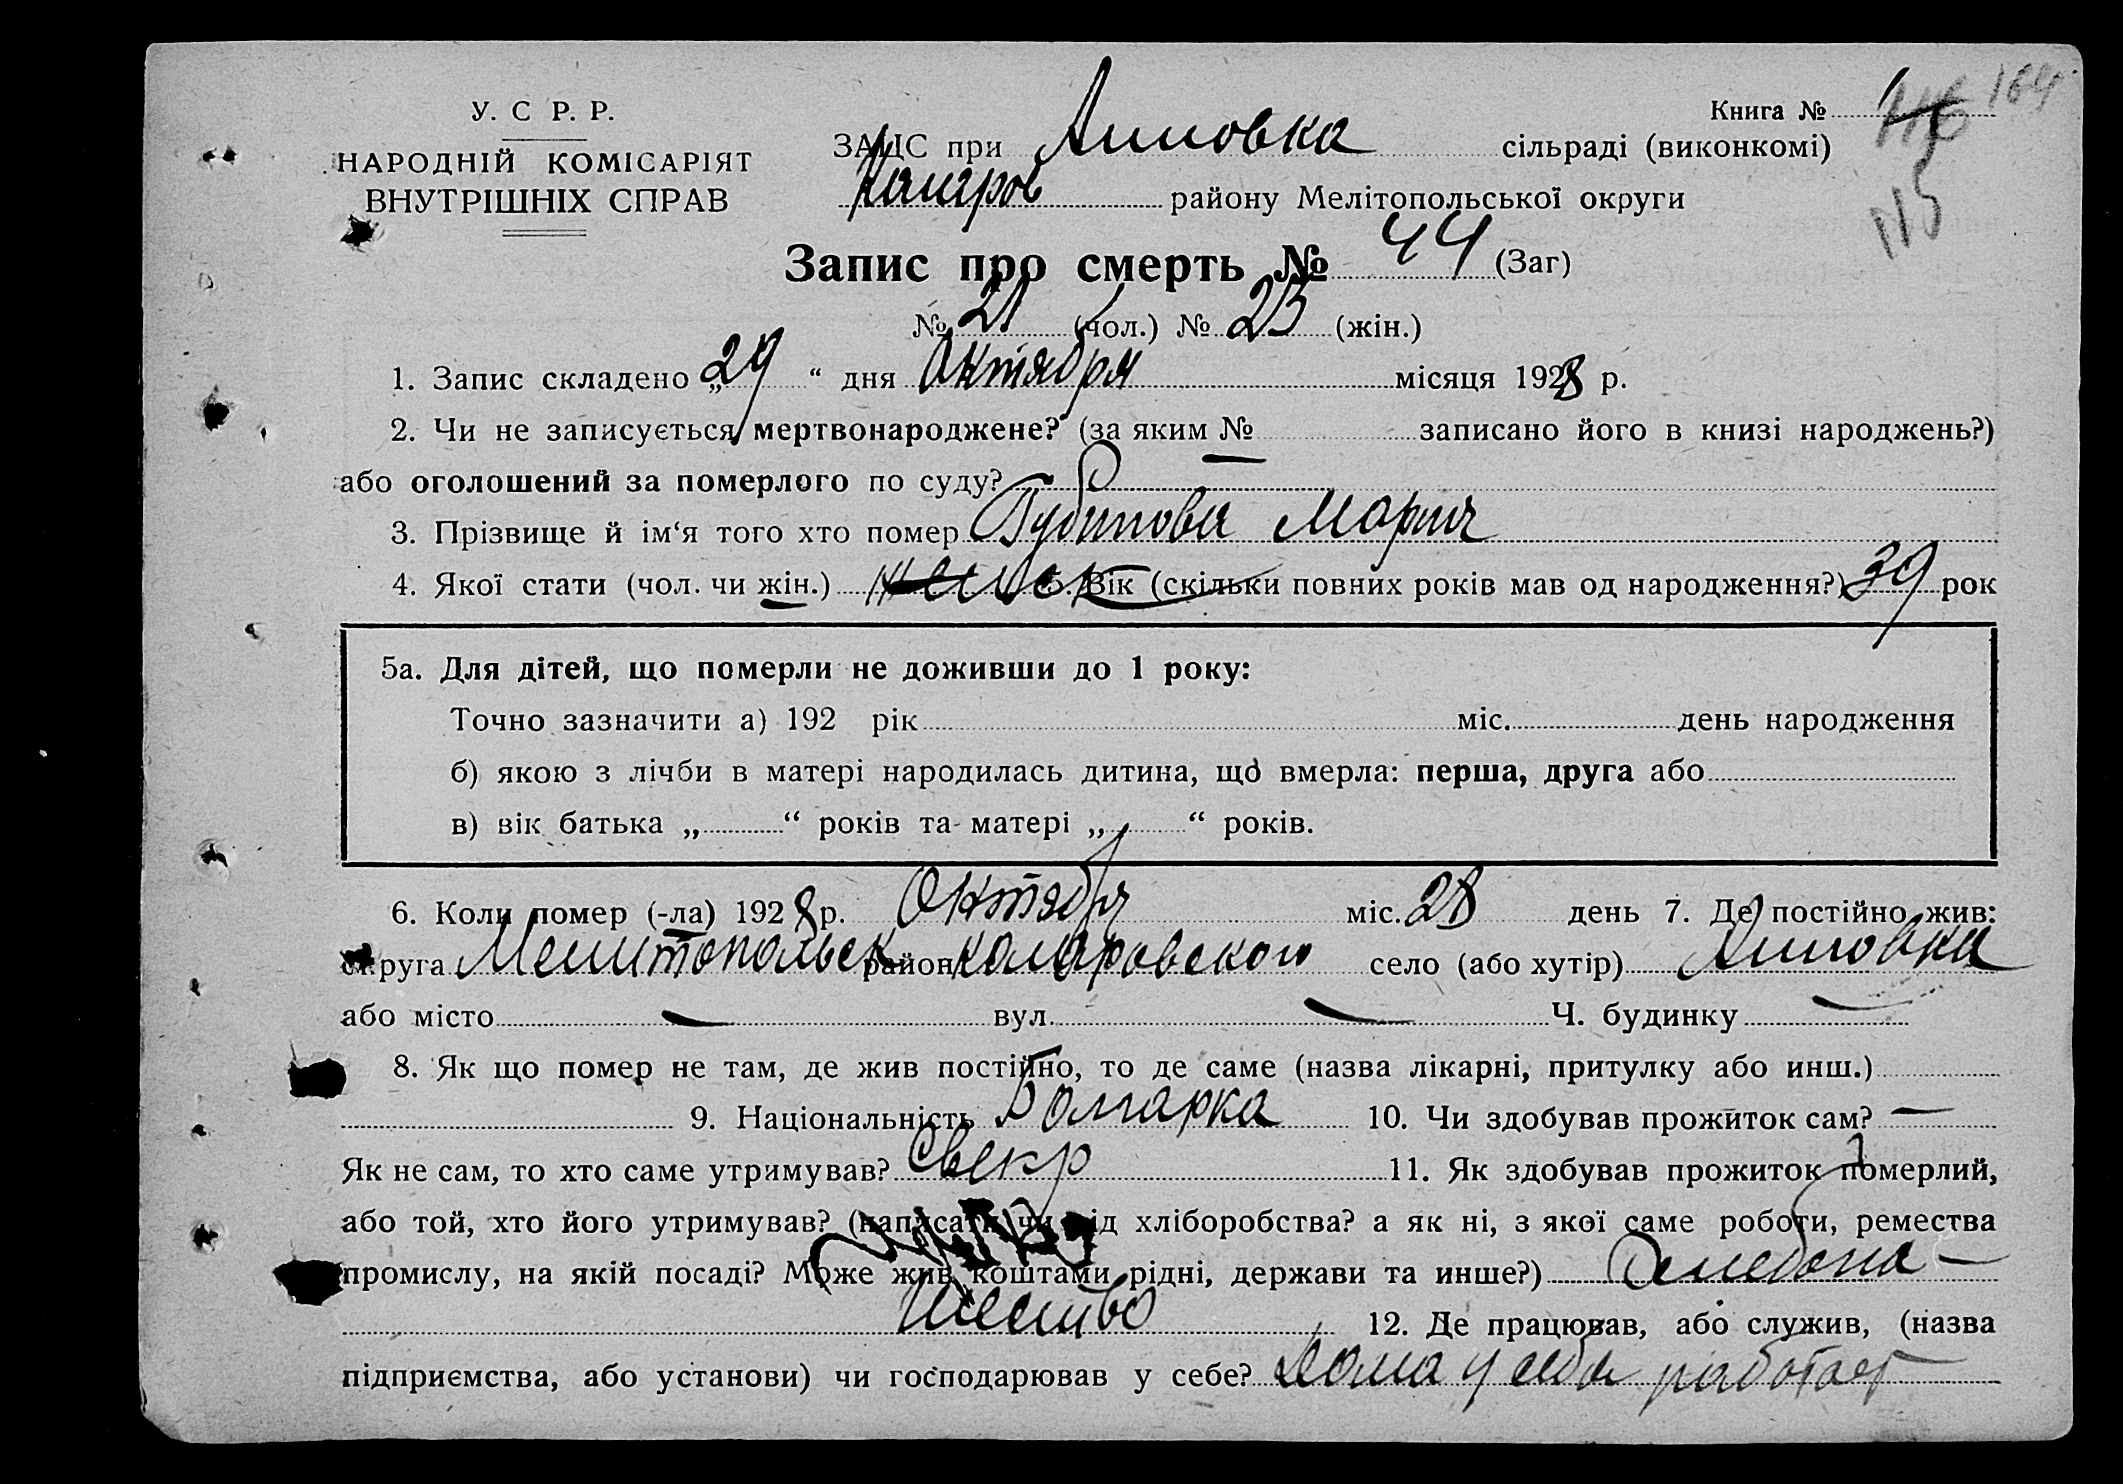 У. С Р. Р.
НАРОДНІЙ КОМІСАРІЯТ
ВНУТРІШНІХ СПРАВ
Книга № 1
164
115
ЗАЦС при Анновка сільраді (виконкомі)
Коларов району Мелітопольської округи
Запис про смерть № 44 (Заг)
№ 21 (чол.) № 23 (жін.)
1. Запис складено „ 29 “ дня Октября місяця 1928 р.
2. Чи не записується мертвонароджене? (за яким № — записано його в книзі народжень?)
або оголошений за померлого по суду?
3. Прізвище й ім‘я того хто помер Мария
4. Якої стати (чол. чи жін.) женск 5. Вік (скільки повних років мав од народження?) 39 рок
5а. Для дітей, що померли не доживши до 1 року:
Точно зазначити а) 192 рік міс. день народження
б) якою з лічби в матері народилась дитина, що вмерла: перша, друга або
в) вік батька „ “ років та матері „ “ років.
6. Коли помер (-ла) 1928 р. Октября міс. 28 день 7. Де постійно жив:
округа Мелитопольск район Коларовского село (або хутір) Анновка
або місто — вул. — Ч. будинку —
8. Як що помер не там, де жив постійно, то де саме (назва лікарні, притулку або инш.)
9. Національність Болгарка 10. Чи здобував прожиток сам? —
Як не сам, то хто саме утримував? Свекр 11. Як здобував прожиток померлий,
або той, хто його утримував? (написати чи від хліборобства? а як ні, з якої саме роботи, ремества
промислу, на якій посаді? Може жив коштами рідні, держави та инше?) Хлебопа-
шество
12. Де працював, або служив, (назва
підприємства, або установи) чи господарював у себе? Дома у себя работает